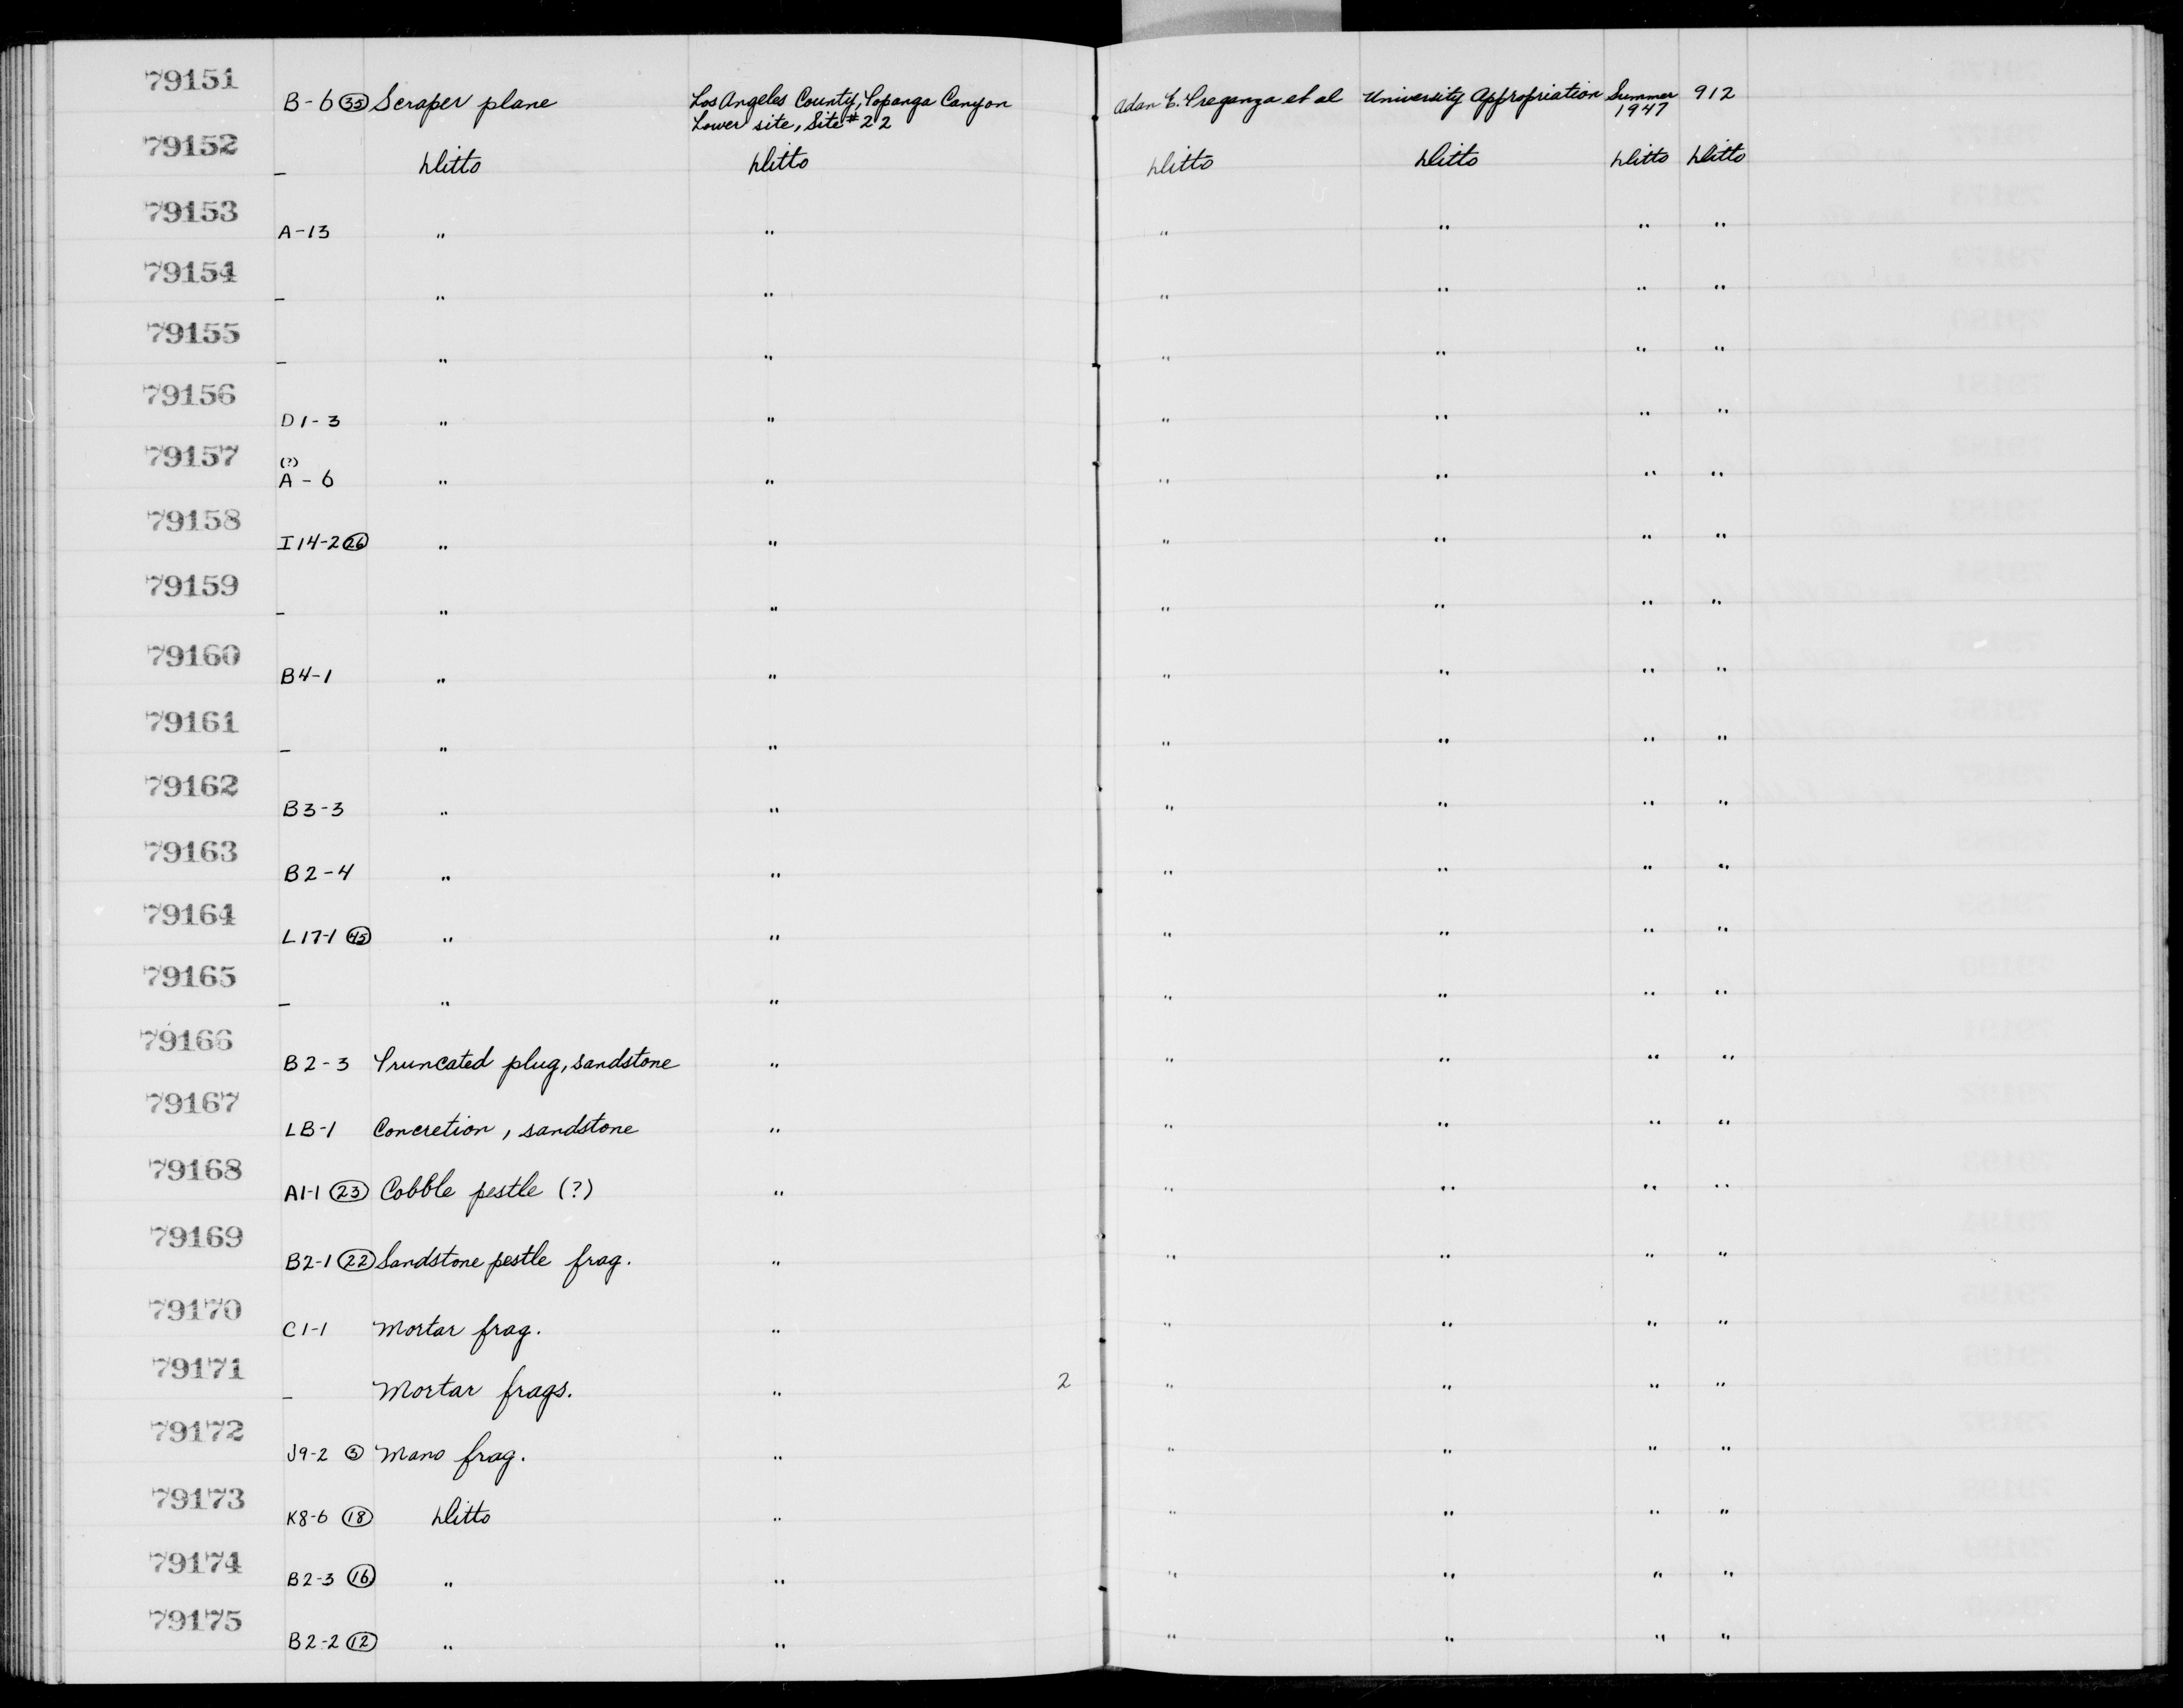 79151 B-6 (35) Scraper plane Los Angeles County, Topanga Canyon Adan E. Treganza et al University Appropriation Summer 912
Lower site, Site #22 1947
79152 – Ditto Ditto Ditto Ditto Ditto Ditto
79153 A-13 " " " " " "
79154 – " " " " " "
79155 – " " " " " "
79156 D1-3 " " " " " "
79157 (?)
A-6 " " " " " "
79158 I14-2 (26) " " " " " "
79159 – " " " " " "
79160 B4-1 " " " " " "
79161 – " " " " " "
79162 B3-3 " " " " " "
79163 B2-4 " " " " " "
79164 L17-1 (45) " " " " " "
79165 – " " " " " "
79166 B2-3 Truncated plug, sandstone " " " " "
79167 LB-1 Concretion, sandstone " " " " "
79168 A1-1 (23) Cobble pestle (?) " " " " "
79169 B2-1 (22) Sandstone pestle frag. " " " " "
79170 C1-1 Mortar frag. " " " " "
79171 – Mortar frags. " 2 " " " "
79172 J9-2 (3) Mano frag. " " " " "
79173 K8-6 (18) Ditto " " " " "
79174 B2-3 (16) " " " " " "
79175 B2-2 (12) " " " " " "